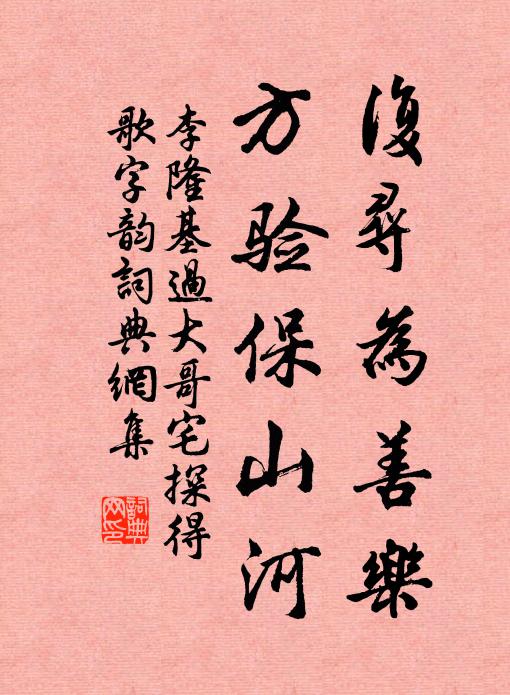 復尋為善樂
方验保山河
李隆基過大哥宅探得
歌字韵詞典網集
詞典网印